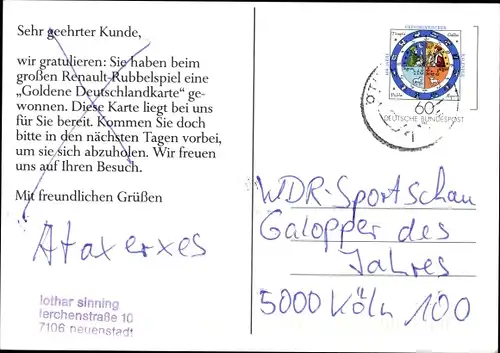 Sehr geehrter Kunde,
wir gratulieren: Sie haben beim
großen Renault-Rubbelspiel eine
„Goldene Deutschlandkarte“ ge-
wonnen. Diese Karte liegt bei uns
für Sie bereit. Kommen Sie doch
bitte in den nächsten Tagen vorbei,
um sie sich abzuholen. Wir freuen
uns auf Ihren Besuch.
Mit freundlichen Grüßen
Ataxerxes
lothar sinning
lerchenstraße 10
7106 neuenstadt
60
DEUTSCHE BUNDESPOST
WDR-Sportschau
Galopper des
Jahres
5000 Köln 100